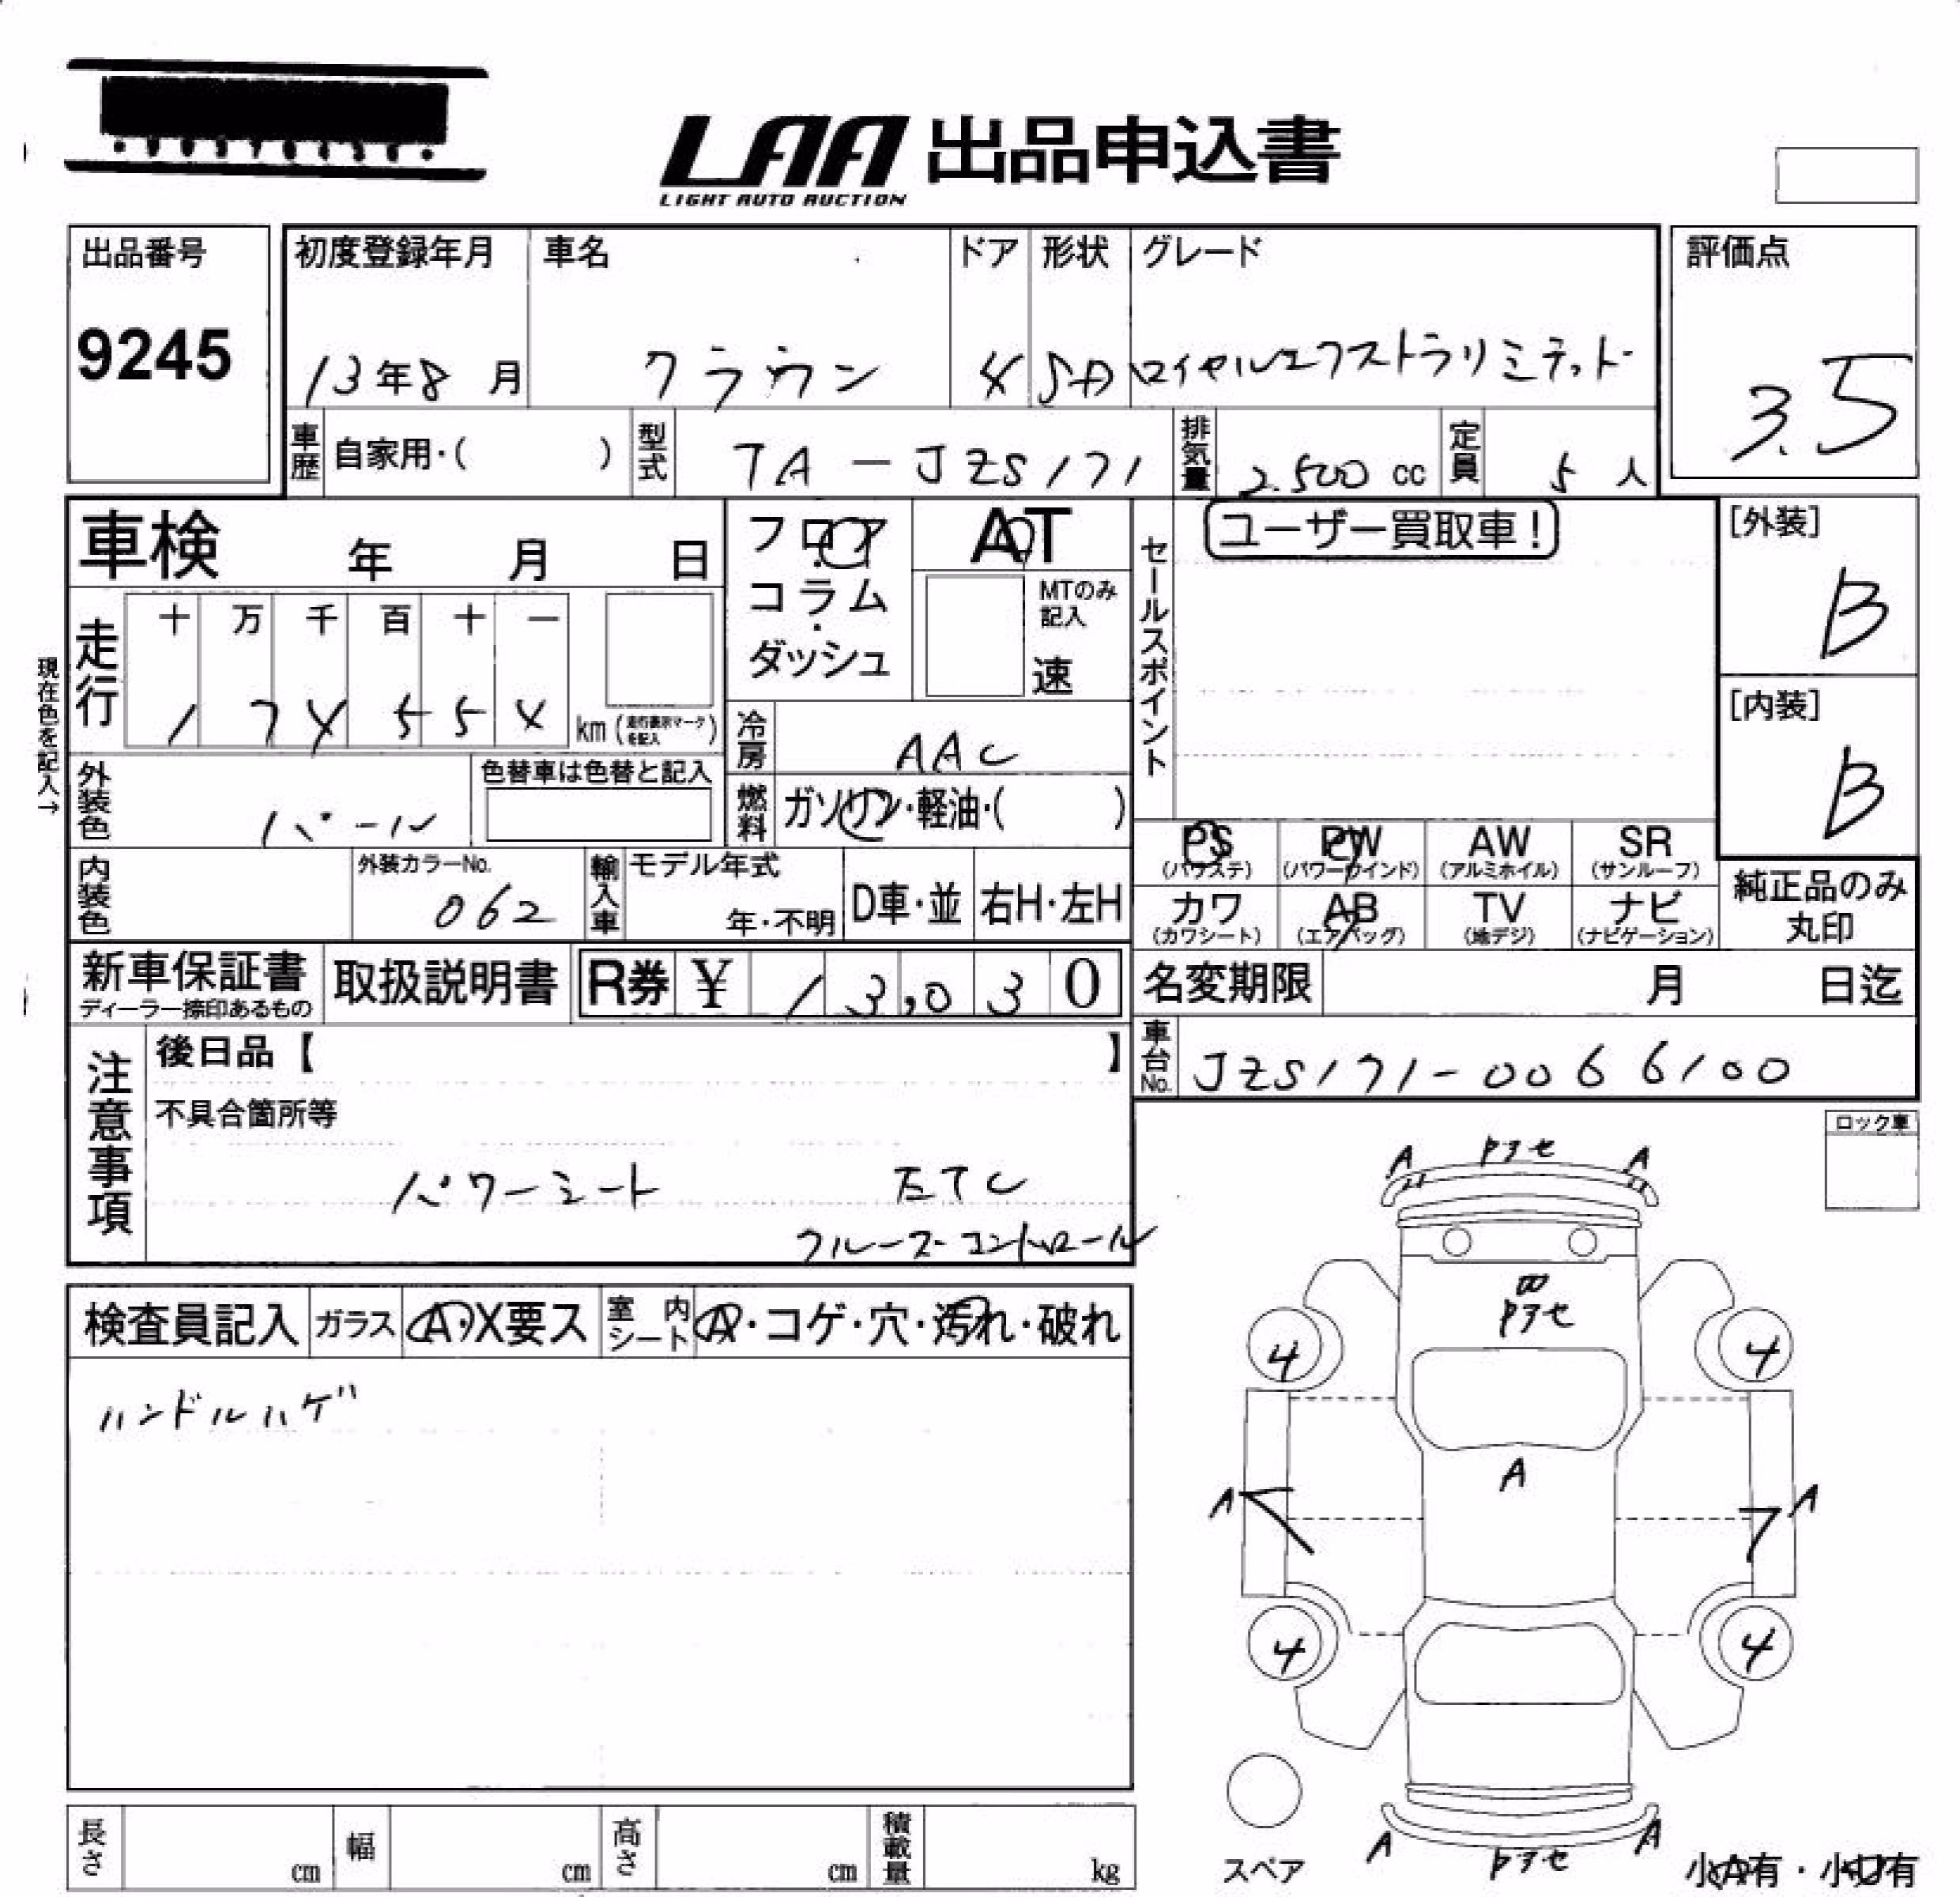 LAA 出品申込書
LIGHT AUTO AUCTION
出品番号
9245
初度登録年月
13年8月
車名
クラウン
ドア
4
形状
SD
グレード
ロイヤルエクストラリミテッド
評価点
3.5
車歴 自家用・( )
型式 TA-JZS171
排気量 2.500 cc
定員 5 人
車検 年 月 日
フロア
コラム
・
ダッシュ
AT
MTのみ
記入
速
セールスポイント
ユーザー買取車!
[外装]
B
[内装]
B
現在色を記入→
走行
十 万 千 百 十 一
1 7 4 5 5 4
km (走行表示マークを記入)
冷房 AAC
外装色 パール
色替車は色替と記入
燃料 ガソリン・軽油・( )
内装色
外装カラーNo.
062
輸入車
モデル年式
年・不明
D車・並
右H・左H
PS
(パワステ)
PW
(パワーウインド)
AW
(アルミホイル)
SR
(サンルーフ)
カワ
(カワシート)
AB
(エアバッグ)
TV
(地デジ)
ナビ
(ナビゲーション)
純正品のみ
丸印
新車保証書
ディーラー捺印あるもの
取扱説明書
R券 ¥ 13,030
名変期限 月 日迄
車台No. JZS171-0066100
注意事項
後日品【 】
不具合箇所等
パワーシート ETC
クルーズコントロール
ロック車
検査員記入
ガラス
A・X要ス
室内シート
A・コゲ・穴・汚れ・破れ
ハンドルハゲ
A トアセ A
トアセ
4 4
A
A A
4 4
A トアセ A
スペア
小A有・小U有
長さ cm
幅 cm
高さ cm
積載量 kg